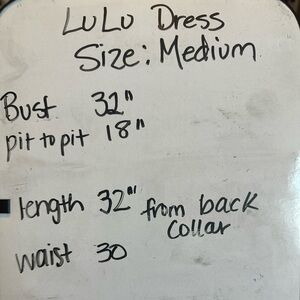 LuLu Dress
Size: Medium
Bust 32"
pit to pit 18"
length 32" from back
Collar
waist 30